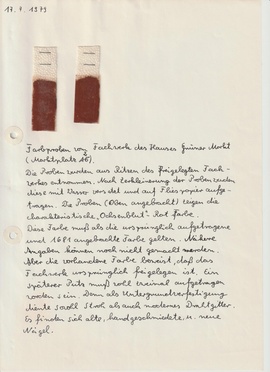 17.1.1979
Farbproben vom Fachwerk des Hauses Grüner Markt
(Marktplatz 16).
Die Proben wurden aus Ritzen des freigelegten Fach-
werkes entnommen. Nach Zerkleinerung der Proben wurden
diese mit Wasser versetzt und auf Fliespapier aufge-
tragen. Die Proben (Oben angebracht) zeigen die
charakteristische „Ochsenblut"-Rot farbe.
Diese Farbe muß als die ursprünglich aufgetragene
und 1681 angebrachte Farbe gelten. Nähere
Angaben können noch nicht gemacht werden.
Aber die vorhandene Farbe beweist, daß das
Fachwerk ursprünglich freigelegen ist. Ein
späterer Putz muß wohl zweimal aufgetragen
worden sein. Denn als Untergrundverfestigung
diente sowohl Stroh als auch modernes Drahtgitter.
Es finden sich alte, handgeschmiedete, u. neue
Nägel.